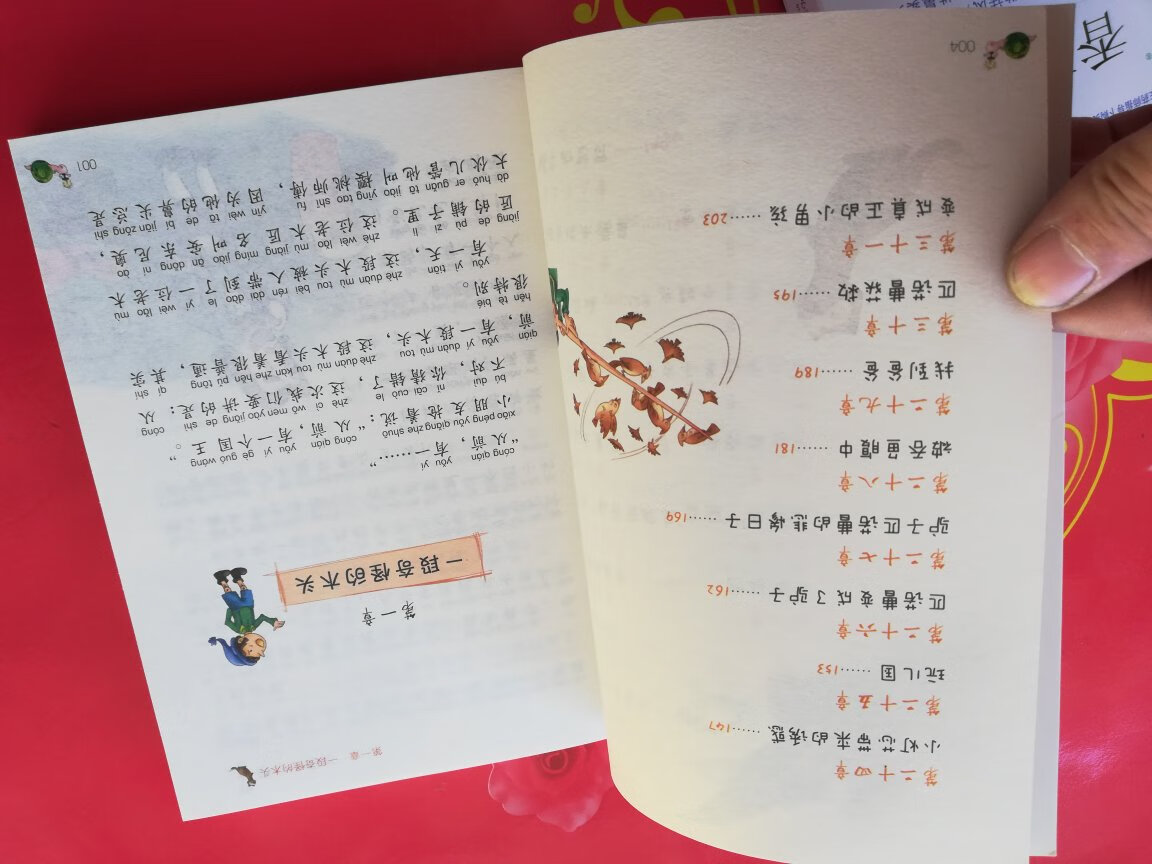 第二十四章
小灯芯带来的诱惑……147
第二十五章
玩儿国……153
第二十六章
匹诺曹变成了驴子……162
第二十七章
驴子匹诺曹的悲惨日子……169
第二十八章
被吞鱼腹中……181
第二十九章
找到爸爸……189
第三十章
匹诺曹获救……195
第三十一章
变成真正的小男孩……203
004
第一章 一段奇怪的木头
第一章
一段奇怪的木头
cóng qián yǒu yí
“从前，有一……”
xiǎo péng yǒu qiǎng zhe shuō cóng qián yǒu yí gè guó wáng
小朋友抢着说：“从前，有一个国王。”
bú duì nǐ cāi cuò le zhè cì wǒ men yào jiǎng de shì cóng
不对，你猜错了，这次我们要讲的是：从
qián yǒu yí duàn mù tou zhè duàn mù tou kàn zhe hěn pǔ tōng qí shí
前，有一段木头，这段木头看着很普通，其实
hěn tè bié
很特别。
yǒu yì tiān zhè duàn mù tou bèi rén dài dào le yí wèi lǎo mù
有一天，这段木头被人带到了一位老木
jiàng de pù zi lǐ zhè wèi lǎo mù jiàng míng jiào ān dōng ní ào
匠的铺子里。这位老木匠名叫安东尼奥，
dà huǒ er guǎn tā jiào yīng tao shī fu yīn wèi tā de bí jiān zǒng shì
大伙儿管他叫樱桃师傅，因为他的鼻尖总是
001
香